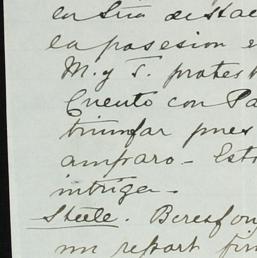 en Sria de stae
la posesion e
M. y T. protest
Cuento con Pa
triunfar pues
amparo - Est
intriga -
Steele. Beresfon
un report fir